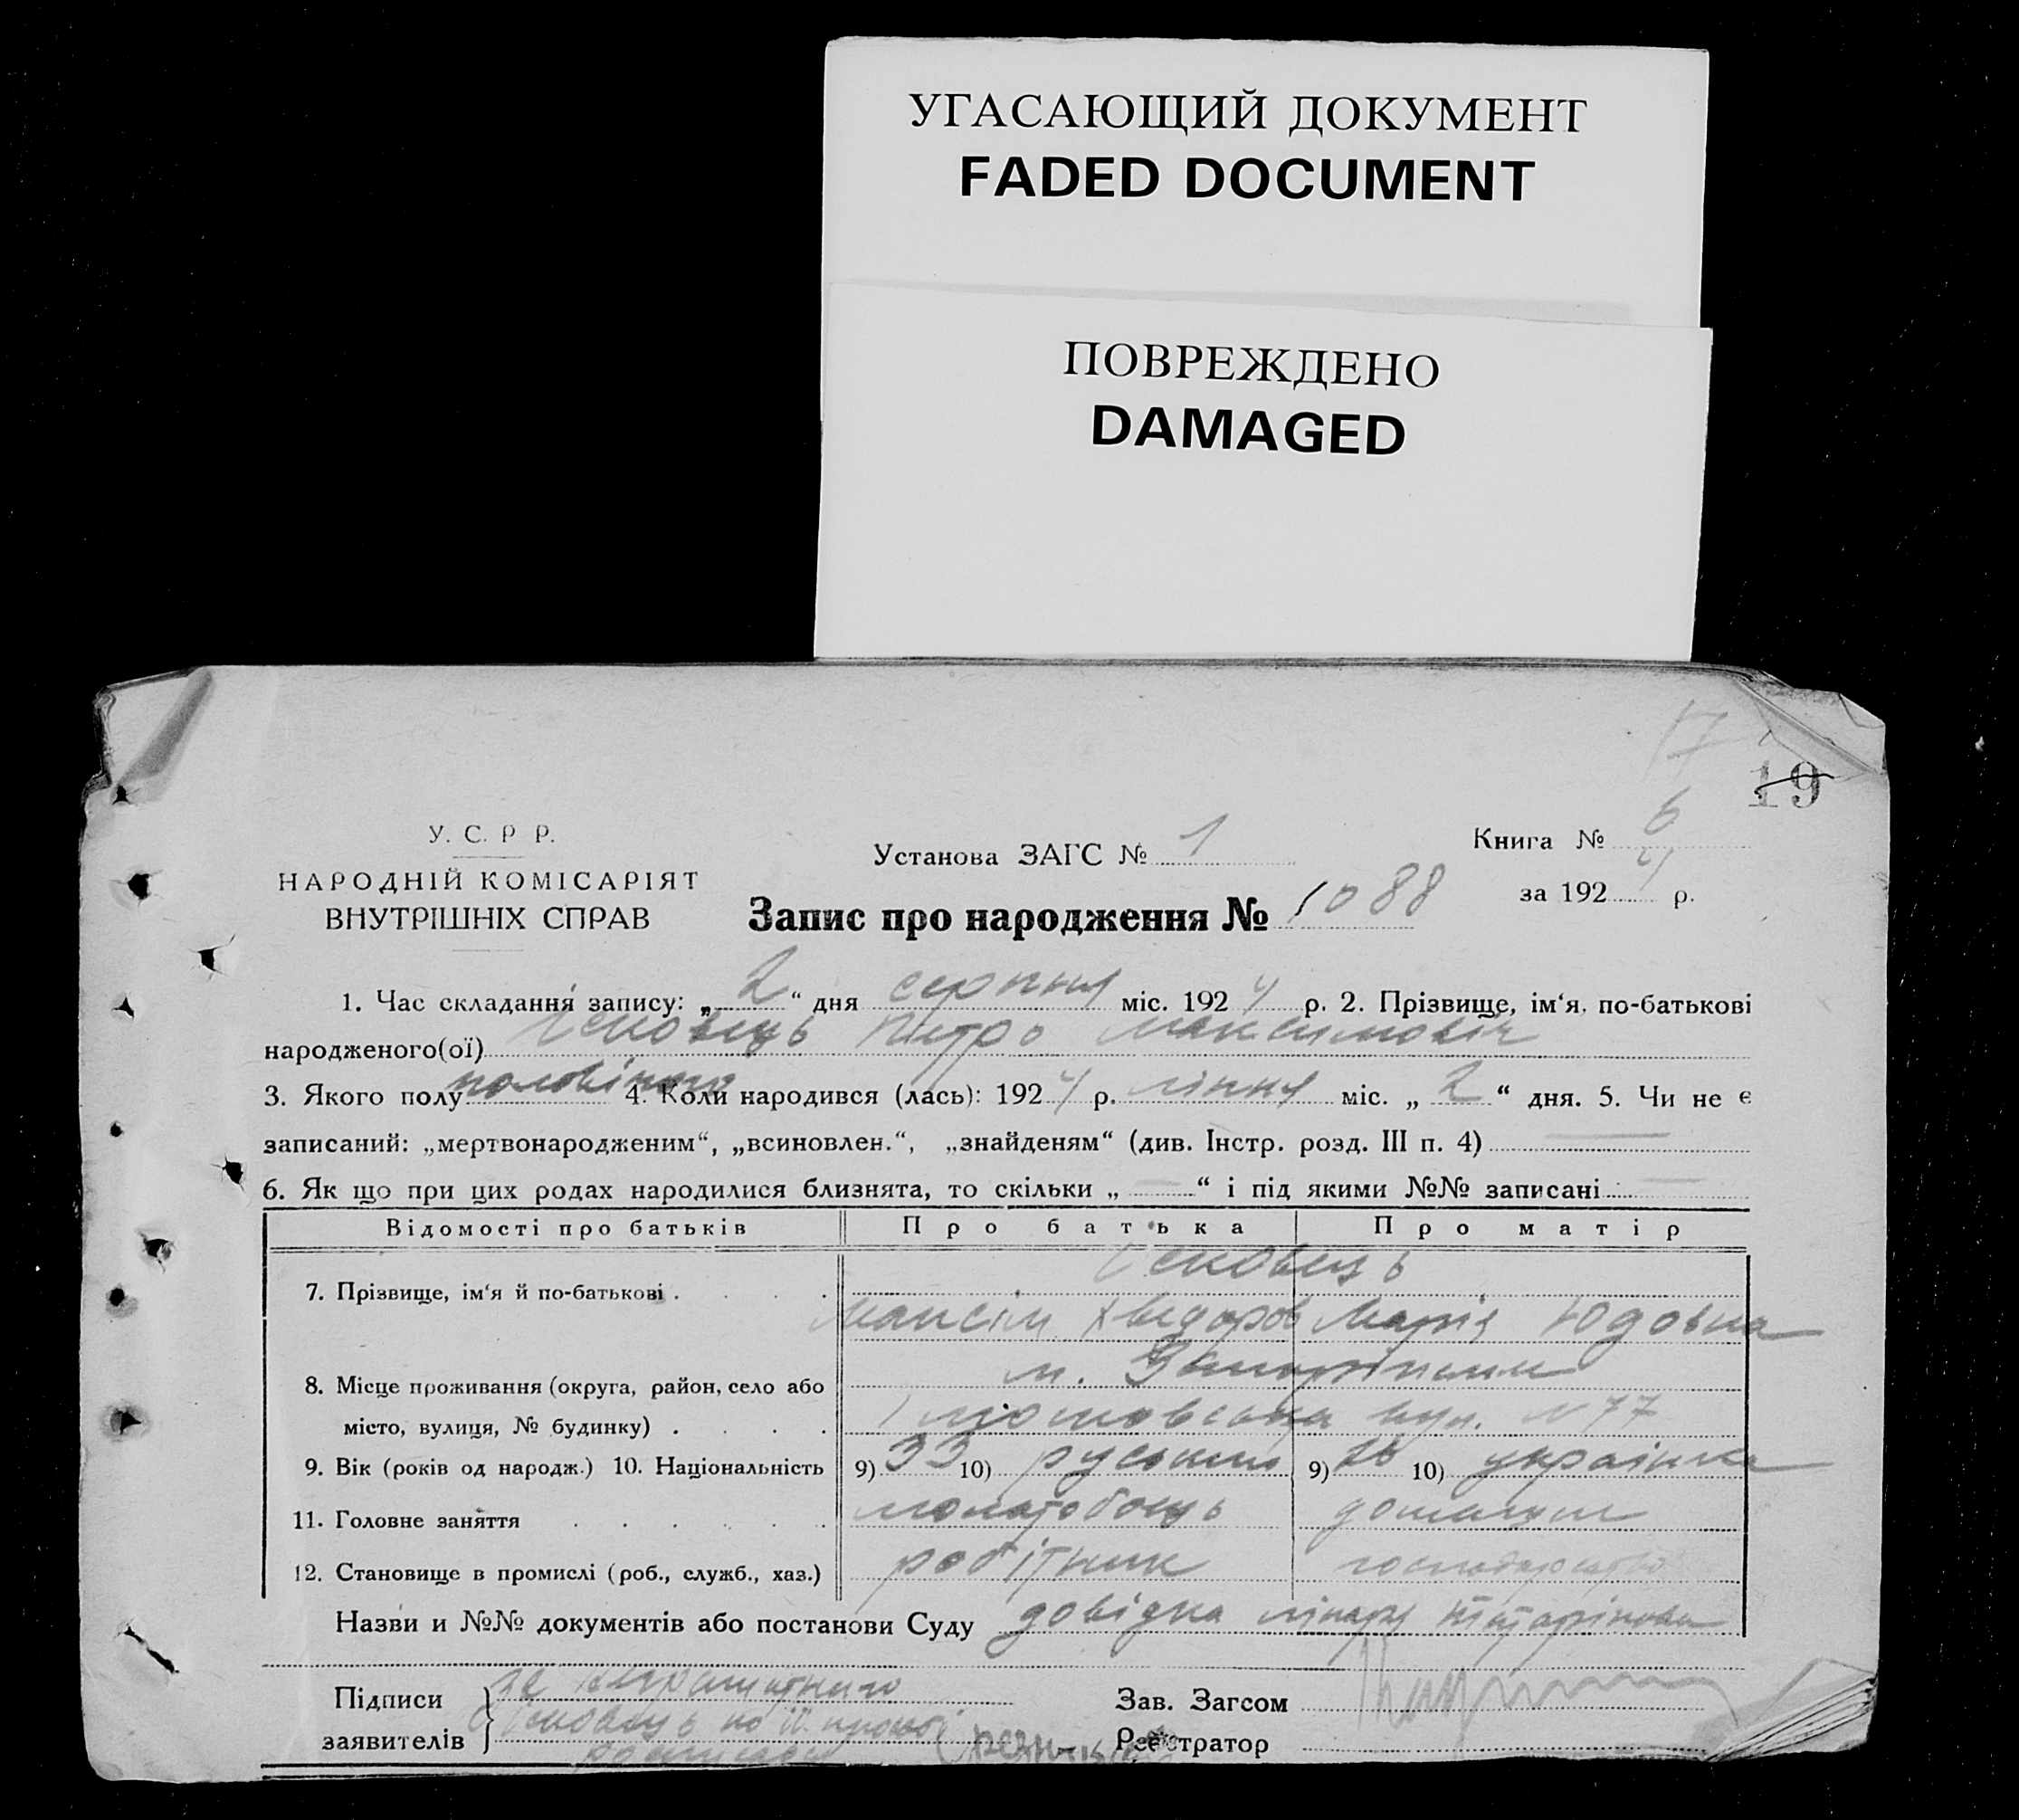 УГАСАЮЩИЙ ДОКУМЕНТ
FADED DOCUMENT
ПОВРЕЖДЕНО
DAMAGED
17
19
У. С. Р. Р.
НАРОДНІЙ КОМІСАРІЯТ
ВНУТРІШНІХ СПРАВ
Установа ЗАГС № 1
Книга № 6
за 1924 р.
Запис про народження № 1088
1. Час складання запису: „2“ дня серпня міс. 1924 р. 2. Прізвище, ім‘я, по-батькові
народженого(ої) Петро Максимовіч
3. Якого полу 4. Коли народився (лась): 1924 р. ліпня міс. „2“ дня. 5. Чи не є
записаний: „мертвонародженим“, „всиновлен.“, „знайденям“ (див. Інстр. розд. III п. 4)
6. Як що при цих родах народилися близнята, то скільки „ — “ і під якими №№ записані —
Відомості про батьків Про батька Про матір
7. Прізвище, ім‘я й по-батькові
Максім Хведоров Марія Юдовна
8. Місце проживання (округа, район, село або м.
місто, вулиця, № будинку) вул. № 77
9. Вік (років од народж.) 10. Національність 9) 33 10) руський 9) 26 10) українка
11. Головне заняття молотобоець домашнє
12. Становище в промислі (роб., служб., хаз.) робітник господарство
Назви и №№ документів або постанови Суду довідка лікаря
Підписи
заявителів
за
по її просьбі
Зав. Загсом
Реєстратор